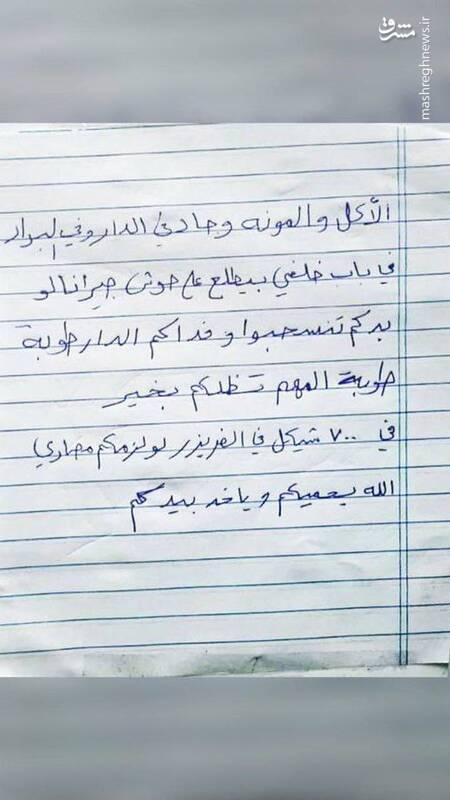 مشرق
mashreghnews.ir
الأكل والمونه وحاد في الدار وفي البراد
في باب خلفي بيطلع على حوش جيرانا لو
بدكم تنسحبوا وفداكم الدار طوبة
طوبة المهم تظلكم بخير
في ٧٠٠ شيكل في الفريزر لو لزمكم مصاري
الله يحميكم وياخد بيدكم